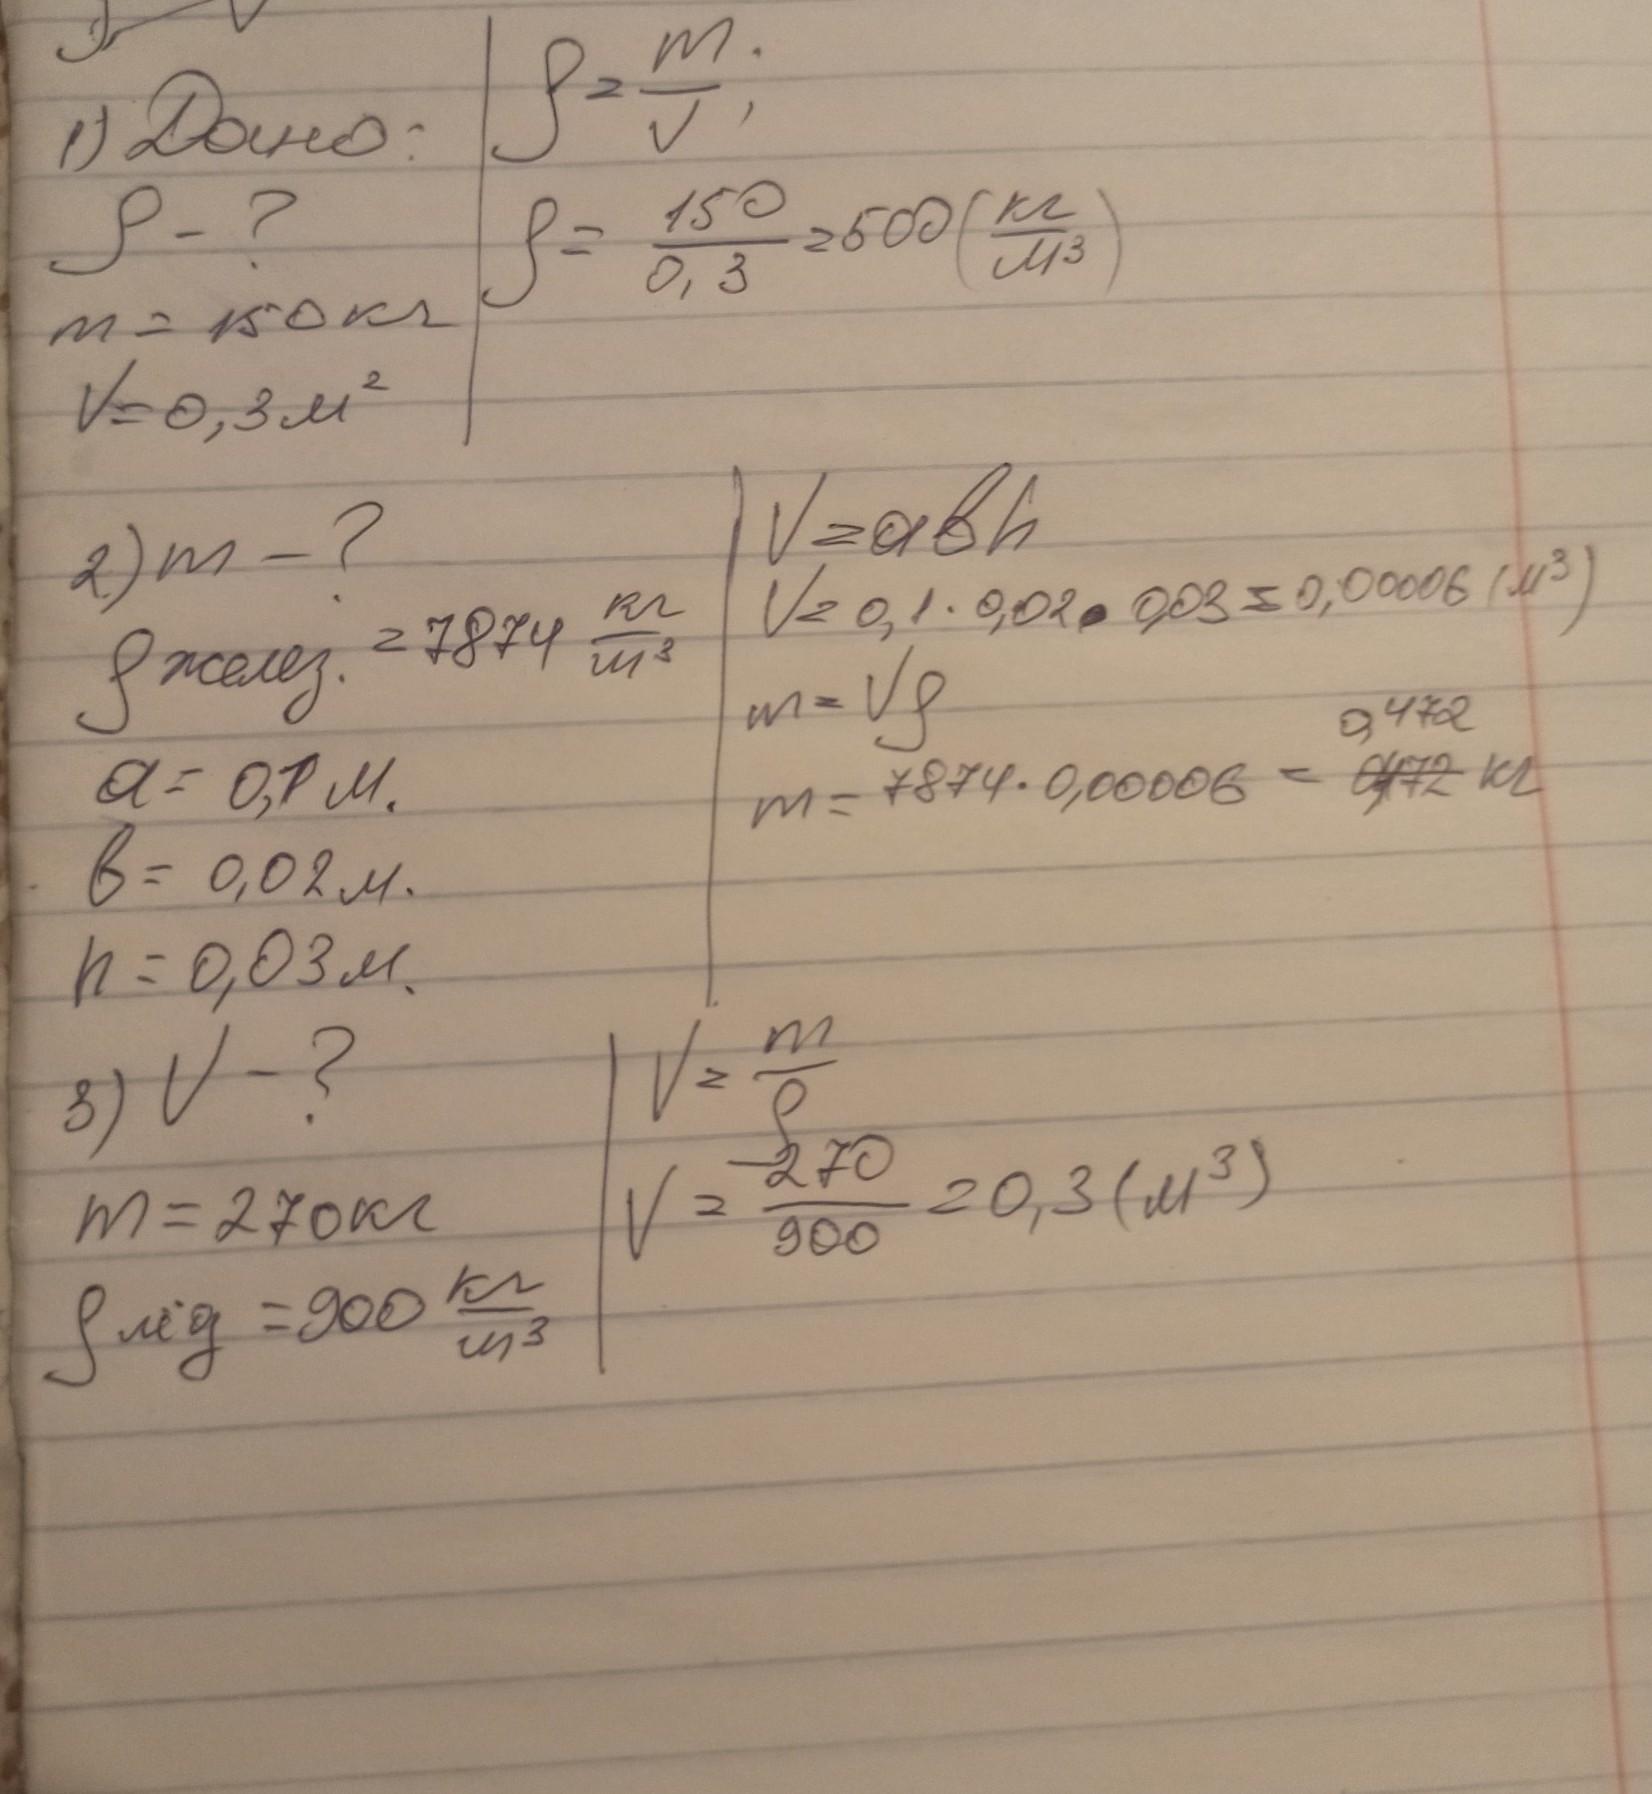 1) Дано:
ρ - ?
m = 150 кг
V = 0,3 м²
ρ = m/V;
ρ = 150/0,3 = 500 (кг/м³)
2) m - ?
ρ желез. = 7874 кг/м³
a = 0,1 м.
b = 0,02 м.
h = 0,03 м.
V = abh
V = 0,1 · 0,02 · 0,03 = 0,00006 (м³)
m = Vρ
0,472
m = 7874 · 0,00006 = кг
3) V - ?
m = 270 кг
ρ лёд = 900 кг/м³
V = m/ρ
V = 270/900 = 0,3 (м³)